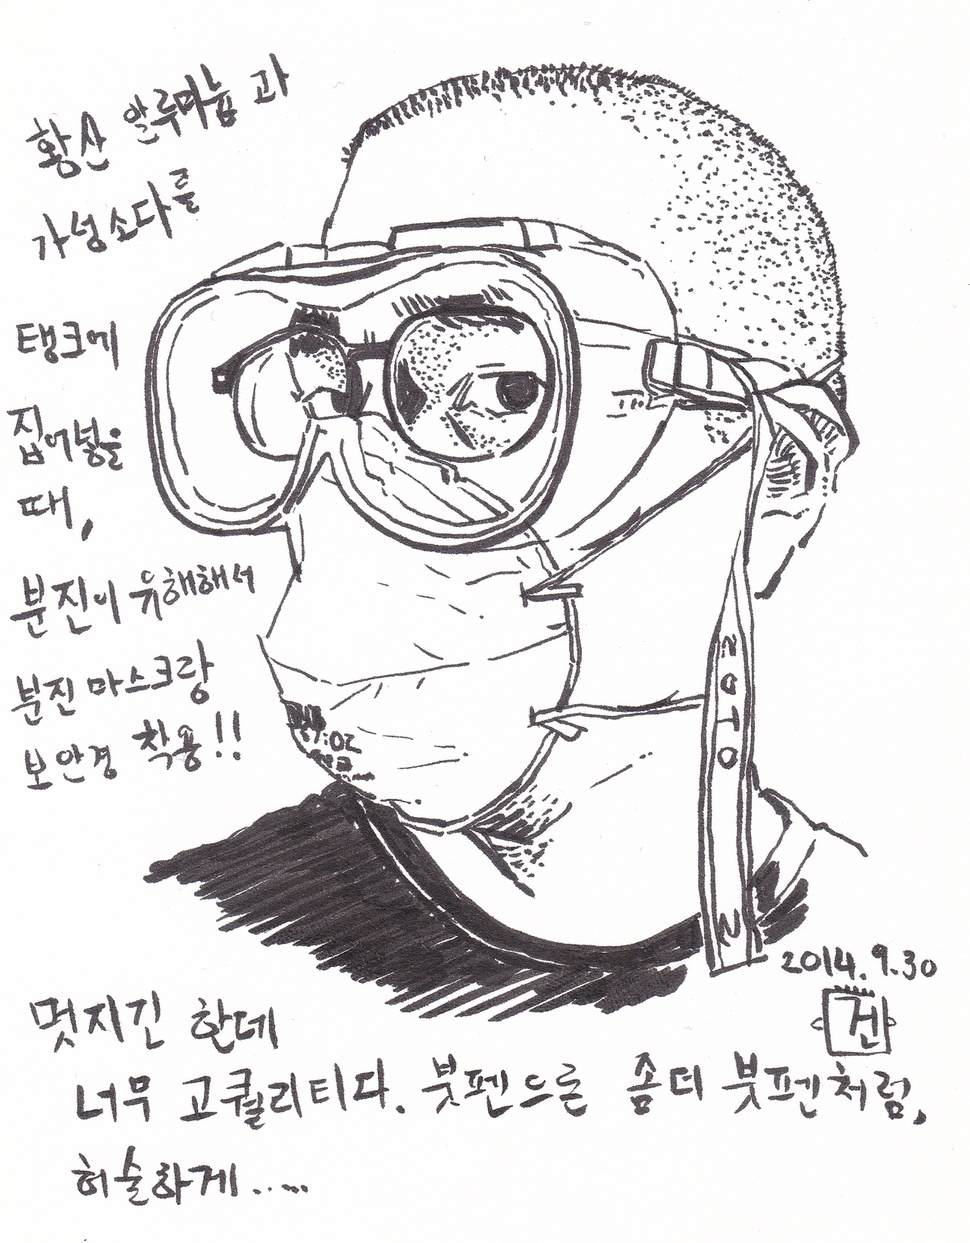 황산 알루미늄 과
가성소다를
탱크에
집어넣을
때,
분진이 유해해서
분진 마스크랑
보안경 착용!!
OTOS
2014.9.30
건
멋지긴 한데
너무 고퀄리티다. 붓펜으론 좀더 붓펜처럼,
허술하게.....